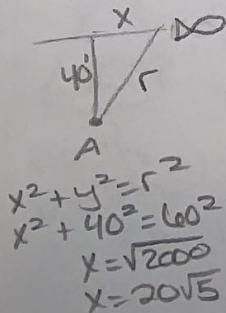 x
40' r
A
x² + y² = r²
x² + 40² = 60²
x = √2000
x = 20√5